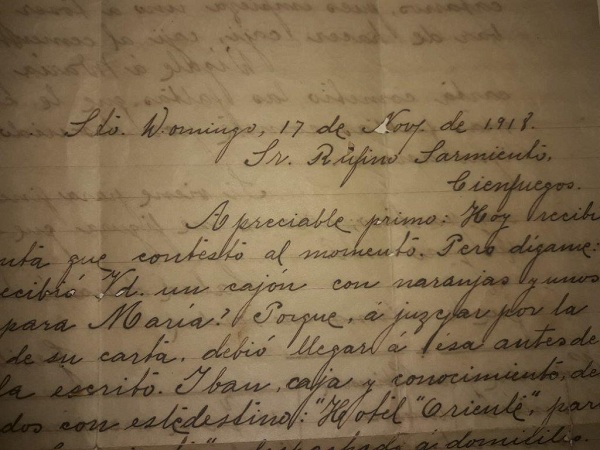 Sto. Domingo, 17 de Nov. de 1918.
Sr. Rufino Sarmiento,
Cienfuegos.
Apreciable primo: Hoy recibi
nta que contestó al momento. Pero dígame:
ecibió Vd. un cajón con naranjas y unos
para María? Porque, á juzgar por la
de su carta, debió llegar á ésa antes de
la escrito. Iban, caja y conocimiento, de
dos con este destino: "Hotel "Oriente", par
á domicilio.